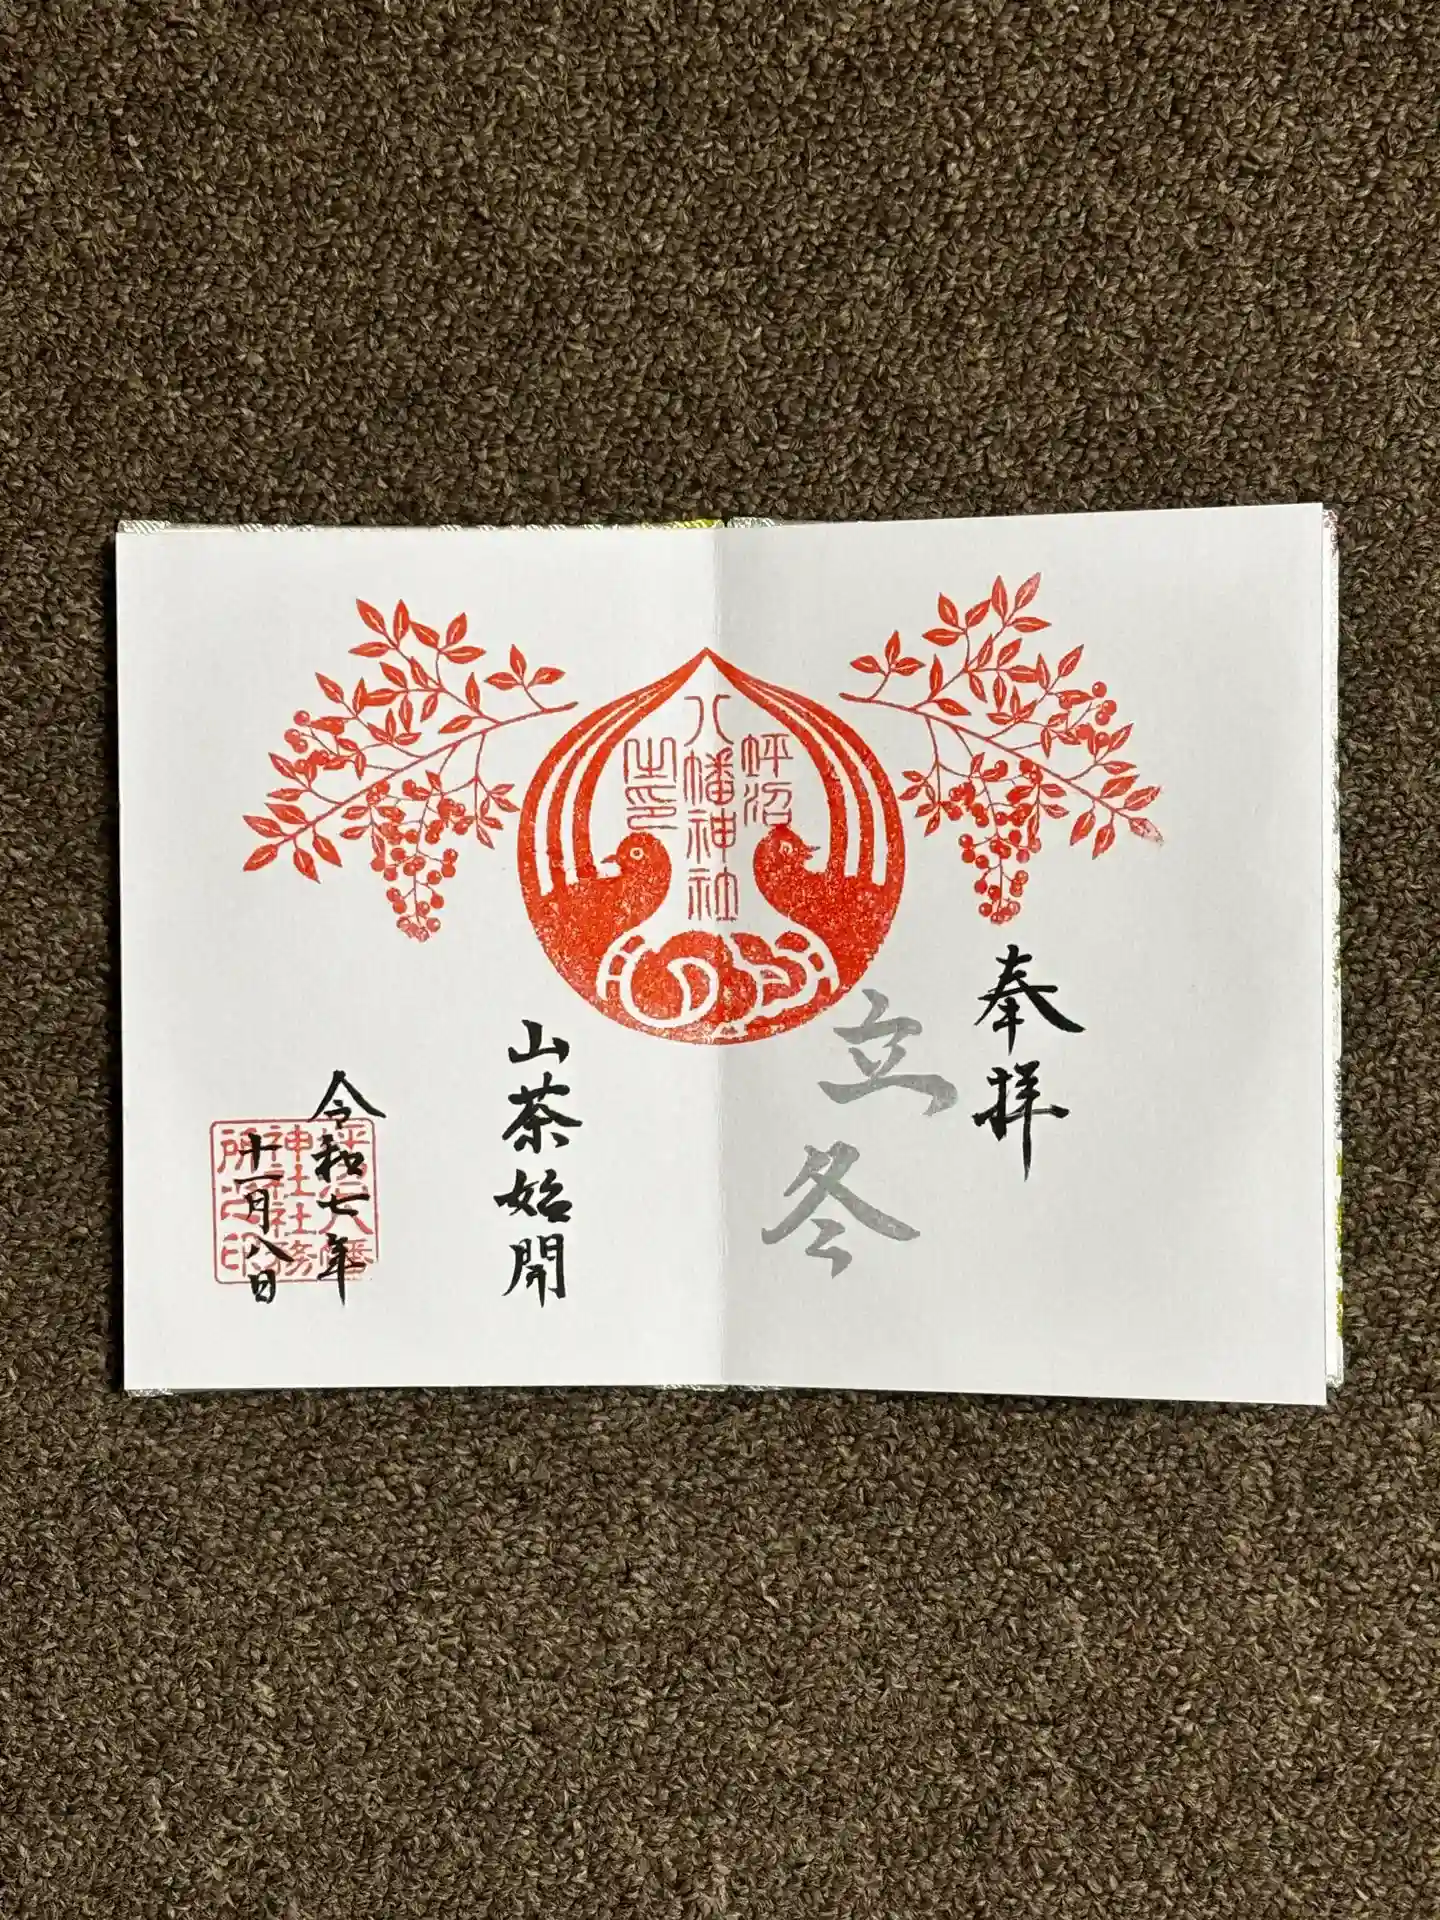 奉拝
立冬
坪沼
八幡神社
之印
山茶始開
令和七年
十一月八日
坪沼八幡
神社社務
所之印